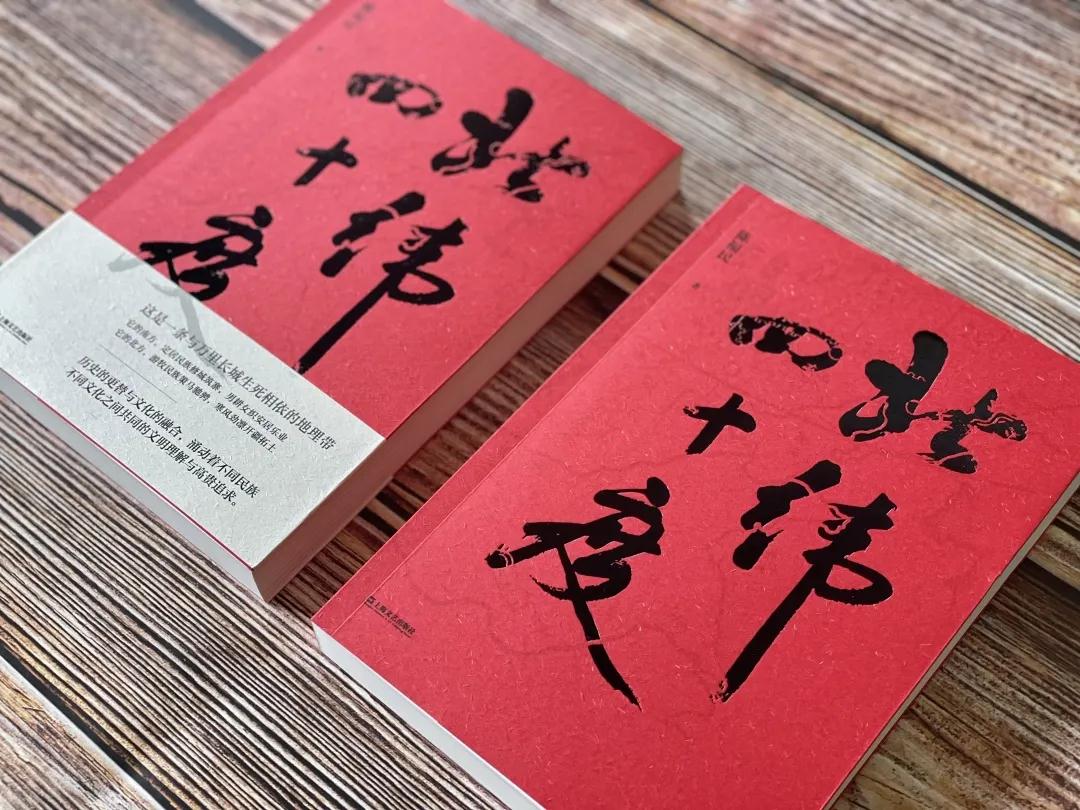 北纬
四十度
这是一条与万里长城生死相依的地理带
它的南方，定居民族修城筑寨，男耕女织安居乐业
它的北方，游牧民族策马驰骋，寒风劲凛开疆拓土
历史的更替与文化的融合，涌动着不同民族
不同文化之间共同的文明理解与高贵追求。
上海文艺出版社
陈福民
北纬
四十度
上海文艺出版社